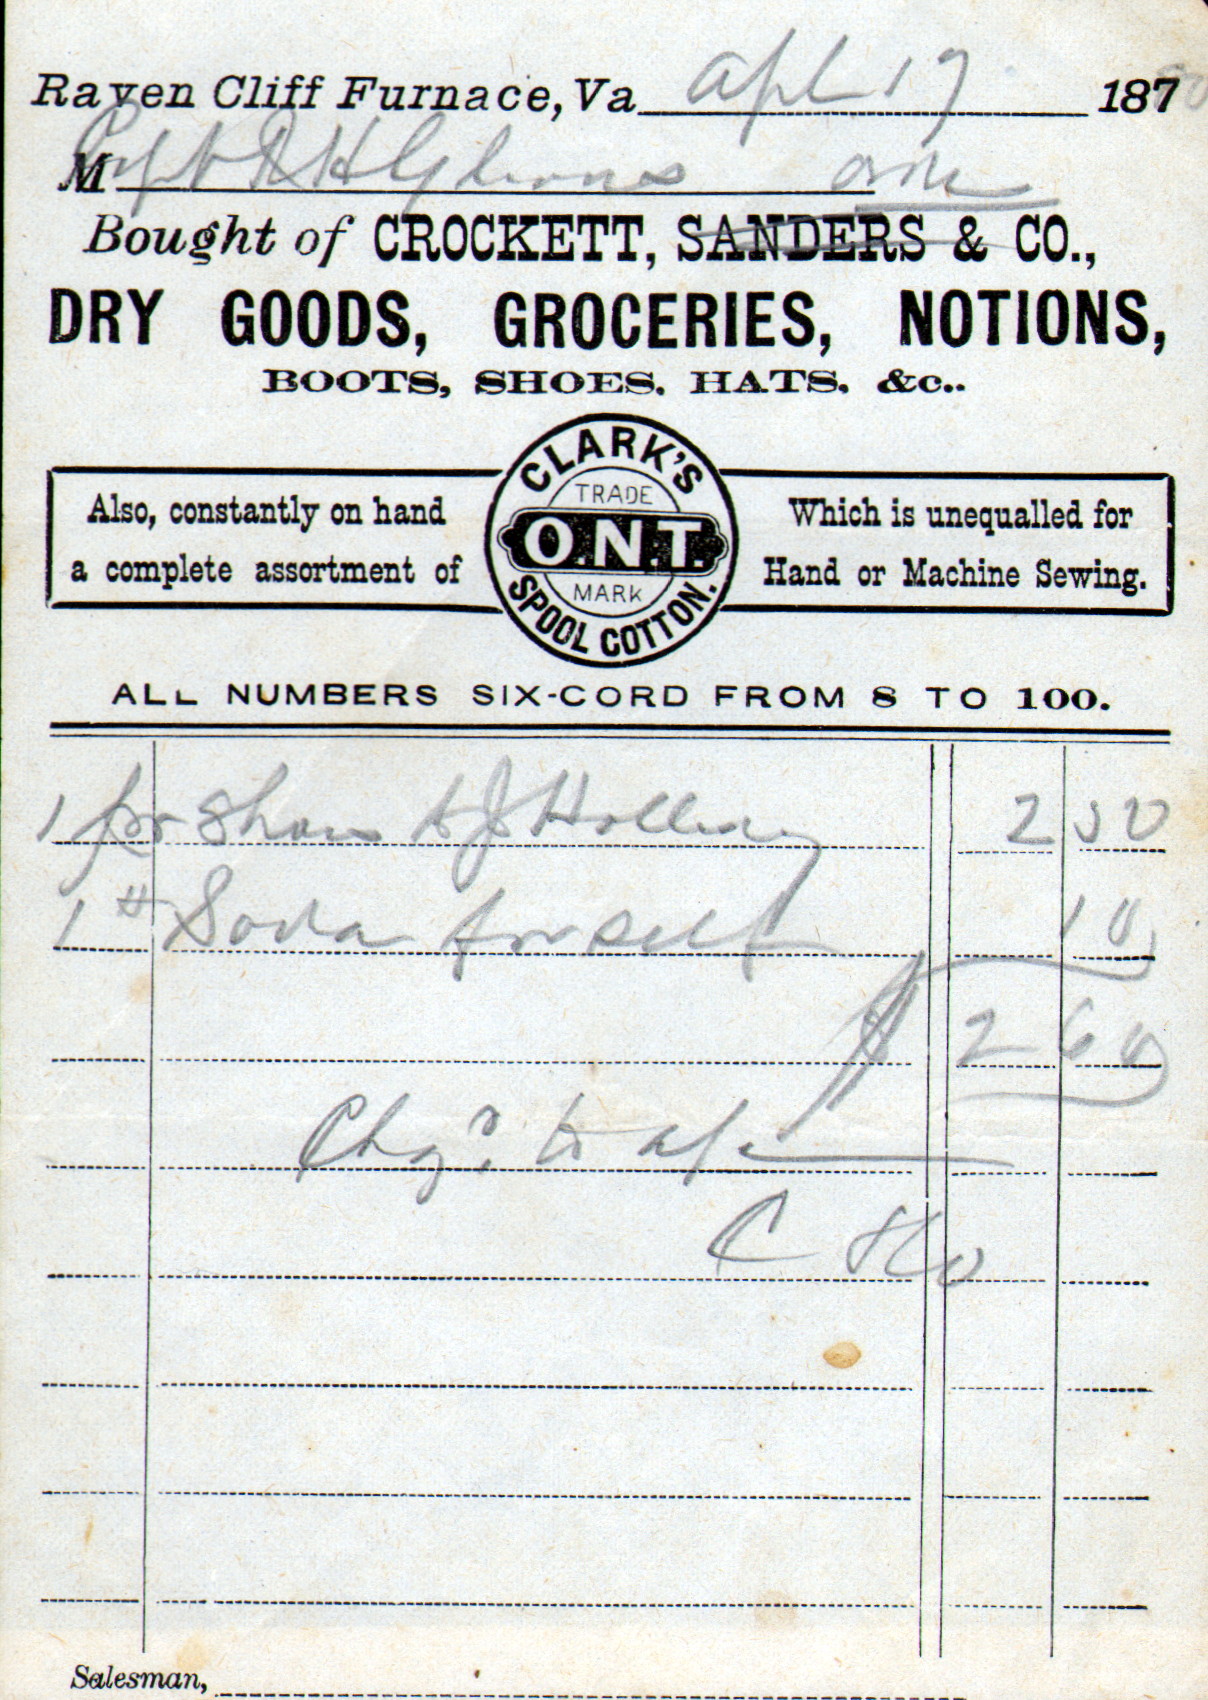 Raven Cliff Furnace, Va Apl 19 1878 80
M Capt R H Gleaves
Bought of CROCKETT, SANDERS & CO.,
DRY GOODS, GROCERIES, NOTIONS,
BOOTS, SHOES, HATS, &c..
CLARK'S
TRADE
Also, constantly on hand
Which is unequalled for
O.N.T.
a complete assortment of
Hand or Machine Sewing.
MARK
SPOOL COTTON.
ALL NUMBERS SIX-CORD FROM 8 TO 100.
1 pr Shoes A J Holliday 2 50
1 # Soda for self 10
$ 2 60
Chgd to a/c
C & Co
Salesman,